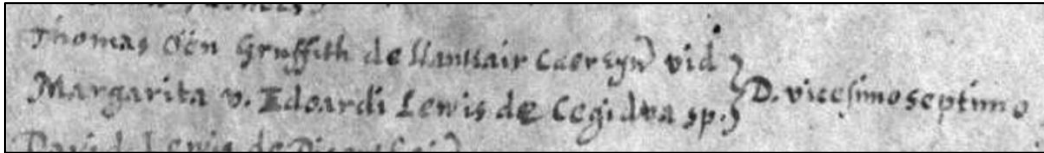 Thomas Oën Gruffith de llanllair Caereyn̄ vid
Margarita v. Edoardi Lewis de Cegidva sp. } D. vicesimo septimo
David Lewis de